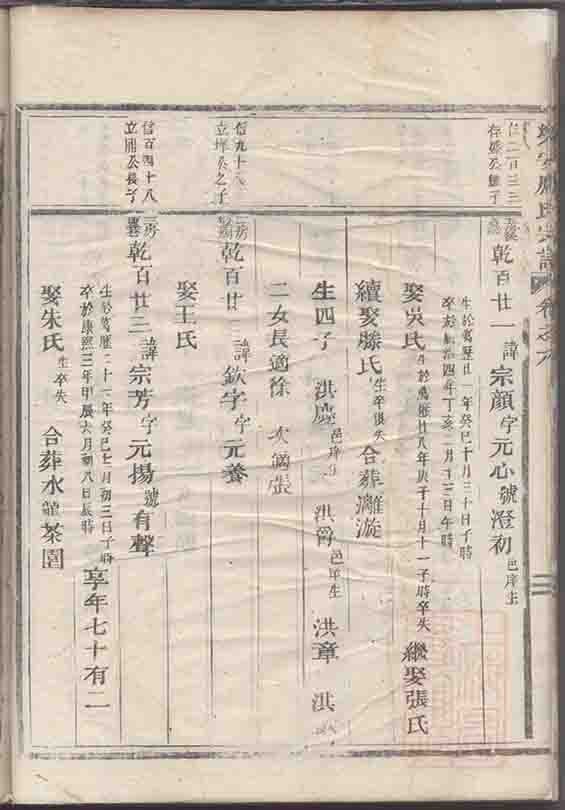 氏宗譜 卷之六
二
仁二百三三
乾百廿一諱宗顏字元心號澄初邑庠生
生於萬歷廿一年癸巳十月三十日子時
卒於四年丁亥二月十三日午時
娶吳氏生於萬歷廿八年庚子十月十一子時卒失 繼娶張氏
續娶滕氏生卒俱失合葬灘漩
生四子 洪 邑庠 洪爵邑庠生 洪章 洪
二女長適徐 次適張
信九十八
立 公之子
房 乾百廿二諱欽字元養
娶王氏
信百四十八
立 公長子
二房 乾百廿三諱宗芳字元揚號有聲
生於萬歷二十一年癸巳七月初三日子時
卒於康熙三年甲辰六月初八日辰時 享年七十有二
娶朱氏生卒失 合葬水 茶園